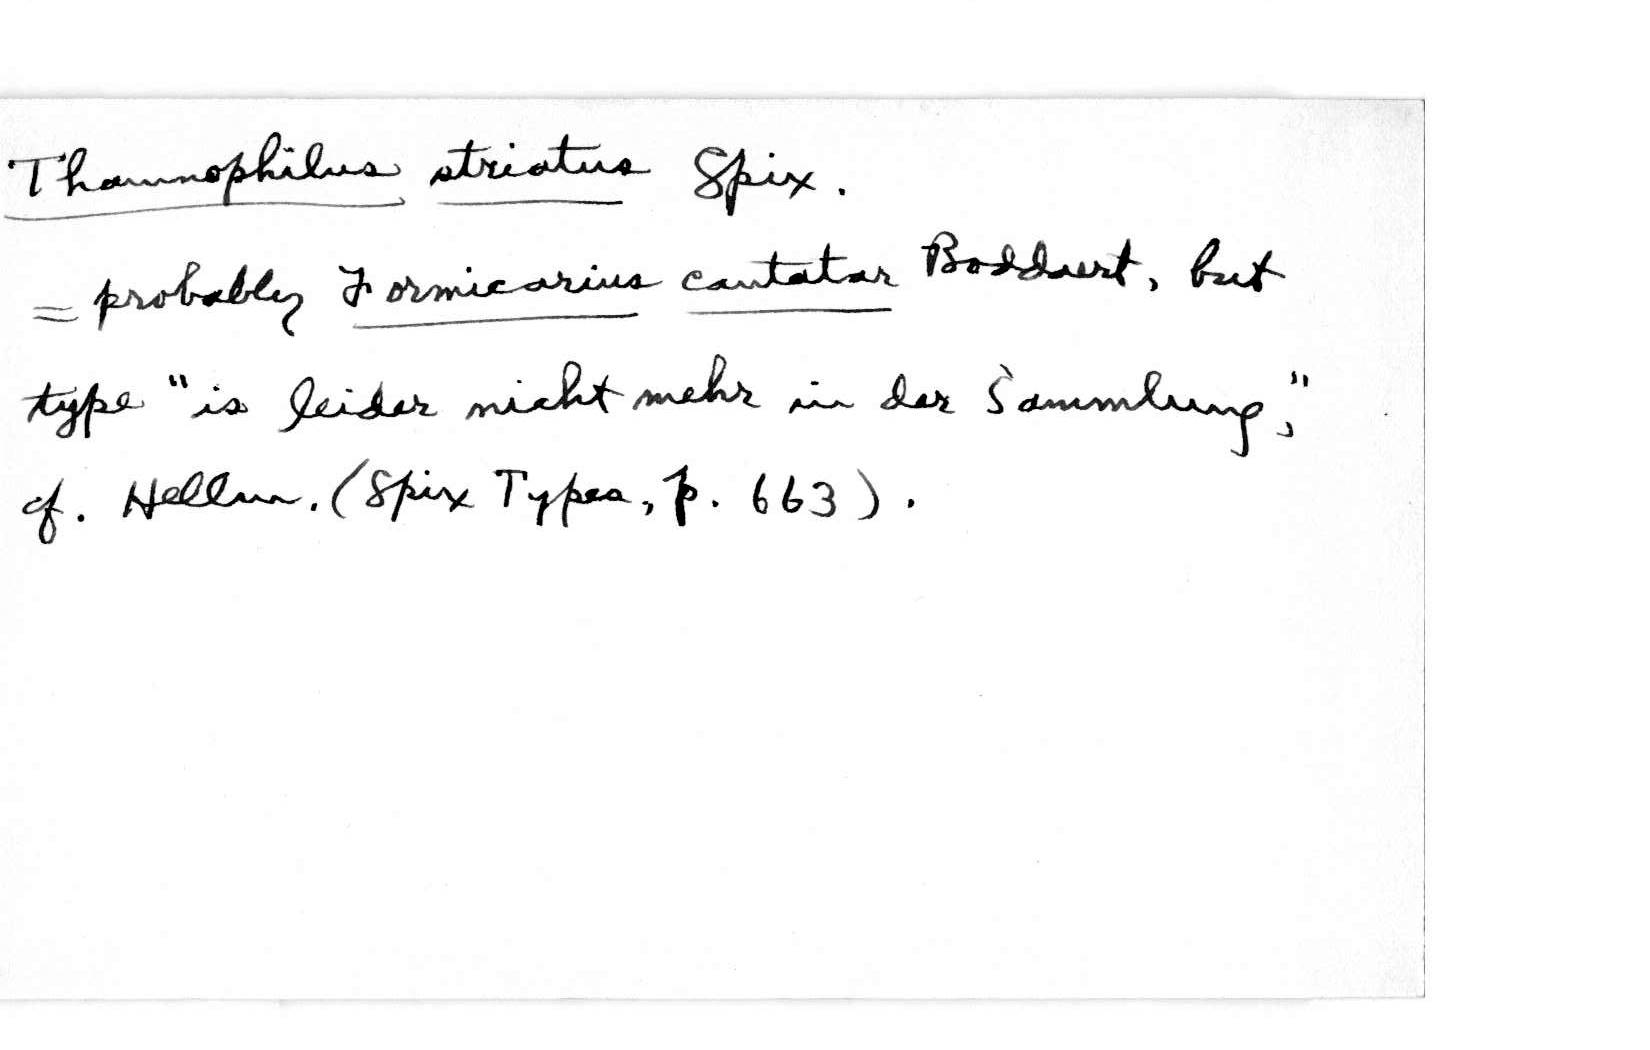 Thamnophilus striatus Spix.
= probably Formicarius cantator Boddaert, but
type "is leider nicht mehr in der Sammlung,"
cf. Hellm. (Spix Types, p. 663).